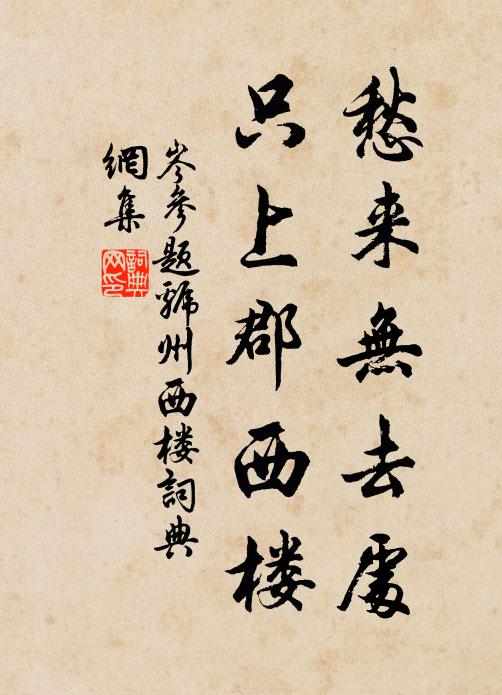 愁来無去處
只上郡西楼
岑參題虢州西楼詞典
網集
詞典
网印